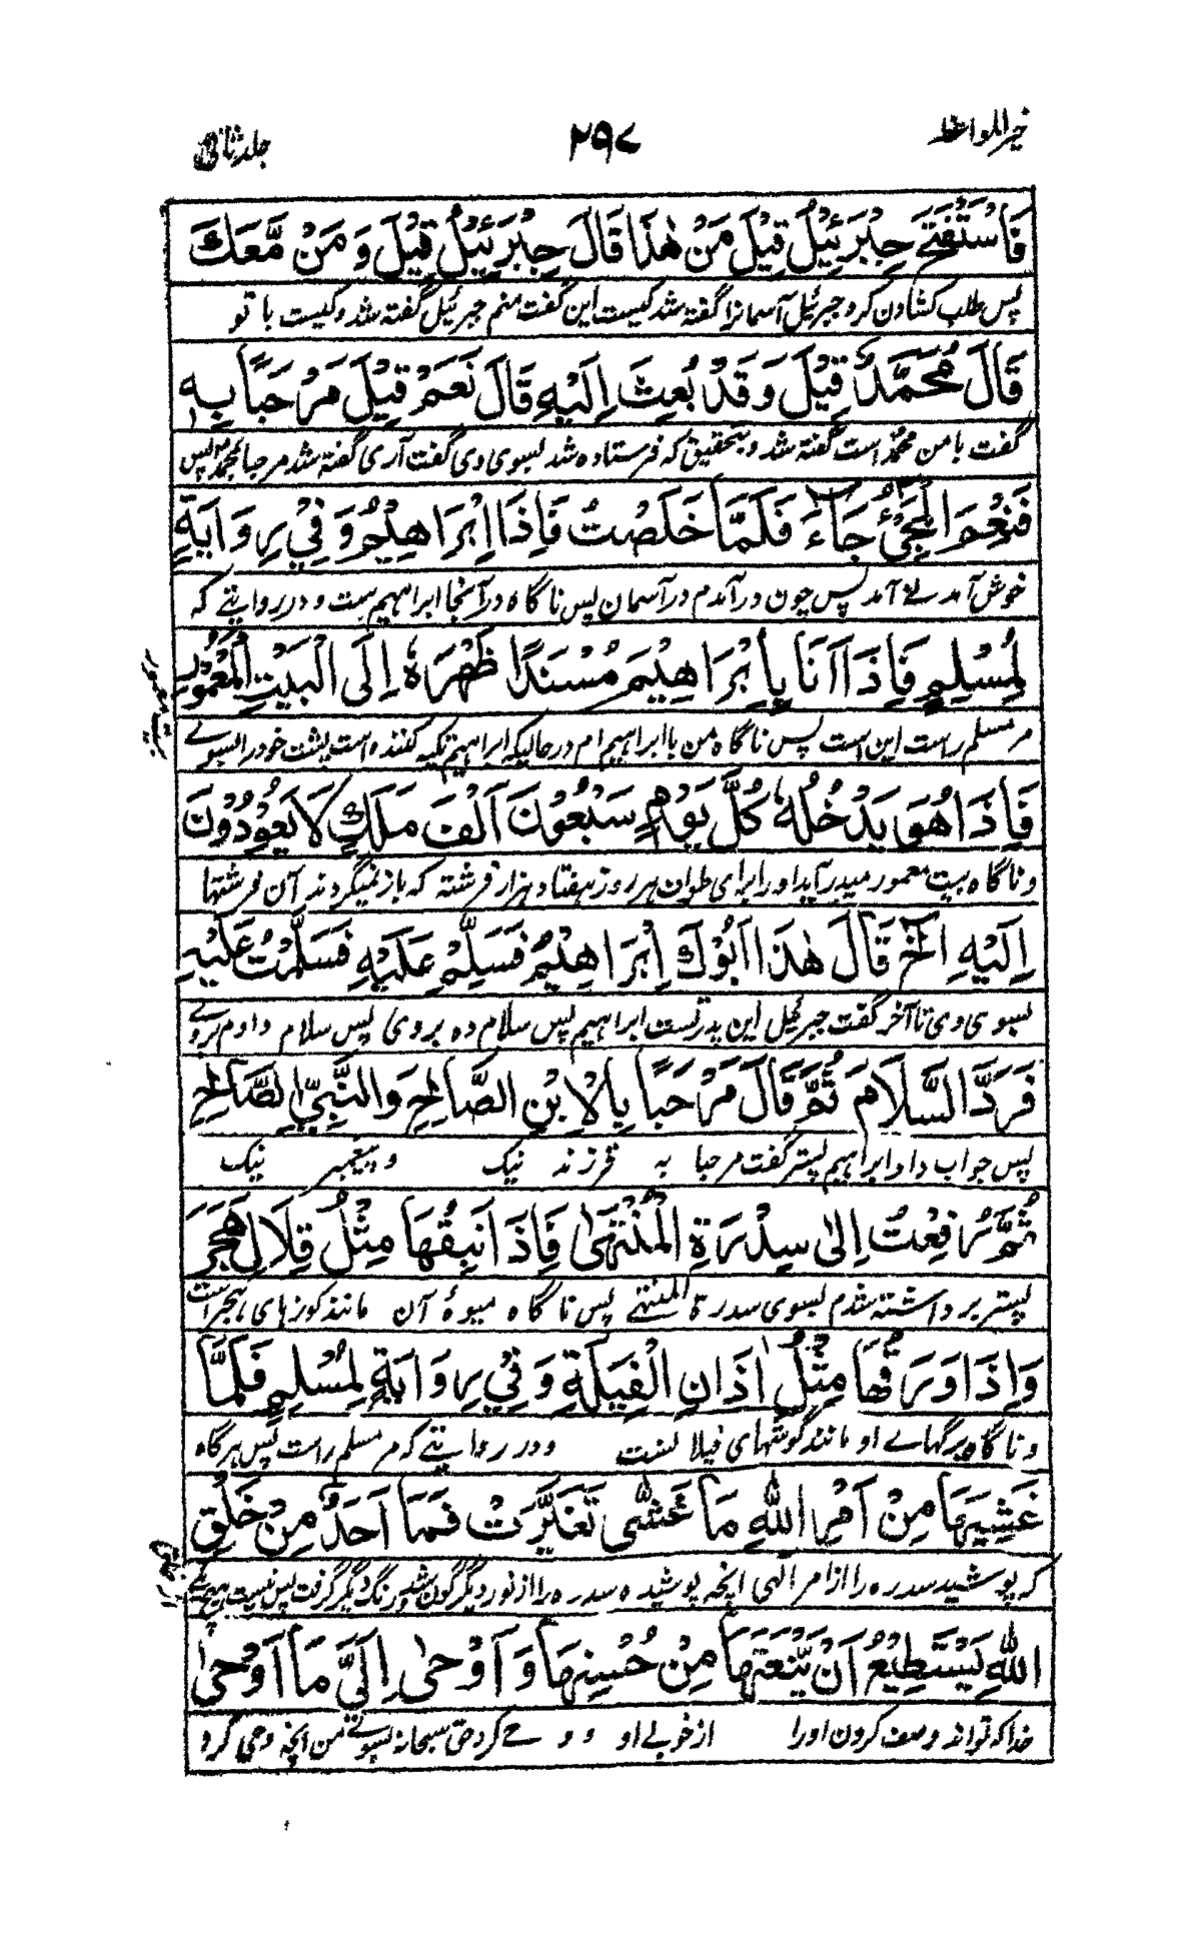 خیر المواعظ ۲۹۷ جلد ثانی
فَاسْتَفْتَحَ جِبْرَئِيْلُ قِيْلَ مَنْ هٰذَا قَالَ جِبْرَئِيْلُ قِيْلَ وَمَنْ مَّعَكَ
پس طلب کشادن کرد جبرئیل آسمانرا گفته شد کیست این گفت منم جبرئیل گفته شد و کیست با تو
قَالَ مُحَمَّدٌ قِيْلَ وَقَدْ بُعِثَ اِلَيْهِ قَالَ نَعَمْ قِيْلَ مَرْحَبًا بِهٖ
گفت با من محمد است گفته شد و بتحقیق که فرستاده شد بسوی وی گفت آری گفته شد مرحبا بمحمد پس
فَنِعْمَ الْمَجِيْءُ جَاءَ فَلَمَّا خَلَصْتُ فَاِذَا اِبْرَاهِيْمُ وَفِيْ رِوَايَةٍ
خوش آمدنے آمد پس چون در آمدم در آسمان پس ناگاه در آنجا ابراهیم ست و در روایتے که
لِمُسْلِمٍ فَاِذَا اَنَا بِاِبْرَاهِيْمَ مُسْنِدًا ظَهْرَهٗ اِلَى الْبَيْتِ الْمَعْمُوْرِ
مر مسلم راست این است پس ناگاه من با ابراهیم ام در حالیکه ابراهیم تکیه کننده است پشت خود را بسوے
بیت معمور
فَاِذَا هُوَ يَدْخُلُهٗ كُلَّ يَوْمٍ سَبْعُوْنَ اَلْفَ مَلَكٍ لَا يَعُوْدُوْنَ
و ناگاه بیت معمور میدر آید او را برای طواف هر روز هفتاد هزار فرشته که باز نمیگردند آن فرشتها
اِلَيْهِ الخ قَالَ هٰذَا اَبُوْكَ اِبْرَاهِيْمُ فَسَلِّمْ عَلَيْهِ فَسَلَّمْتُ عَلَيْهِ
بسوی وی تا آخر گفت جبرئیل این پدر تست ابراهیم پس سلام ده بر وی پس سلام دادم بروے
فَرَدَّ السَّلَامَ ثُمَّ قَالَ مَرْحَبًا بِالْاِبْنِ الصَّالِحِ وَالنَّبِيِّ الصَّالِحِ
پس جواب داد ابراهیم پستر گفت مرحبا به فرزند نیک و پیغمبر نیک
ثُمَّ رُفِعْتُ اِلٰى سِدْرَةِ الْمُنْتَهٰى فَاِذَا نَبِقُهَا مِثْلُ قِلَالِ هَجَرَ
پستر برداشته شدم بسوی سدرة المنتهے پس ناگاه میوۀ آن مانند کوزهای هجر است
وَاِذَا وَرَقُهَا مِثْلُ اٰذَانِ الْفِيَلَةِ وَفِيْ رِوَايَةٍ لِمُسْلِمٍ فَلَمَّا
و ناگاه برگهاے او مانند گوشهای فیلانست و در روایتے که مر مسلم راست پس هرگاه
غَشِيَهَا مِنْ اَمْرِ اللهِ مَا غَشٰى تَغَيَّرَتْ فَمَا اَحَدٌ مِنْ خَلْقِ
که پوشید سدره را از امر الهی انچه پوشیده سدره را از نور دیگرگون شد و رنگ دیگر گرفت پس نیست هیچ یکے
اللهِ يَسْتَطِيْعُ اَنْ يَّنْعَتَهَا مِنْ حُسْنِهَا وَاَوْحٰى اِلَيَّ مَا اَوْحٰى
خدا که تواند وصف کردن او را از خوبے او و وحے کرد حق سبحانه بسوے من انچه وحی کرد